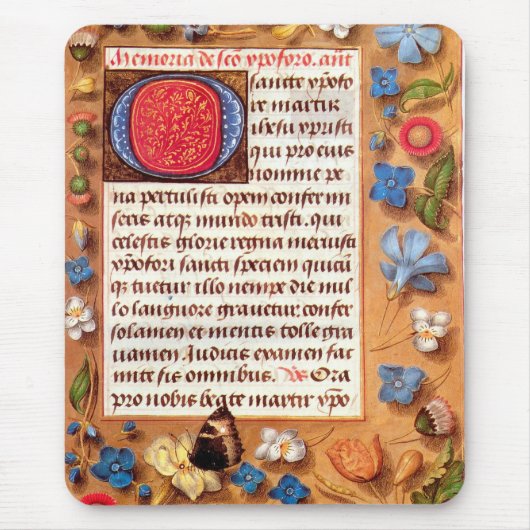 Memoria de sco ypoforo. ant
O sancte ypofo
re martir
ihesu ypristi
qui pro eius
nomine pe
na pertulisti opem confer mi
seris atq mundo tristi. qui
celestis glorie regna meruisti
ypofori sancti speciem quicu
q tuetur illo nempe die nul
lo languore gravetur. confer
solamen et mentis tolle gra
uamen. Judicis examen fac
mite sis omnibus. Ora
pro nobis beate martir ypo